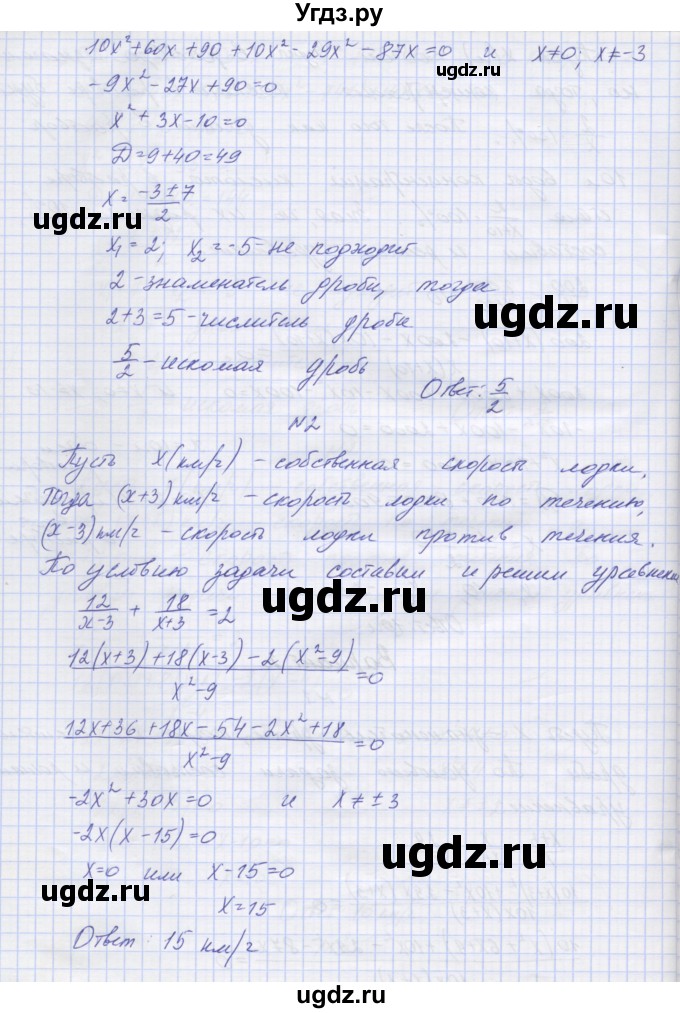 Угдз.ру
10x²+60x+90+10x²-29x²-87x=0 и x≠0; x≠-3
-9x²-27x+90=0
x²+3x-10=0
D=9+40=49
x= (-3±7)/2
ugdz.ru
ugdz.ru
x₁=2; x₂=-5-не подходит
2-знаменатель дроби, тогда
ugdz.ru
2+3=5-числитель дроби
5/2-искомая дробь
Ответ: 5/2
ugdz.ru
№2
Пусть x(км/ч) - собственная скорость лодки.
Тогда (x+3)км/ч - скорость лодки по течению,
(x-3)км/ч - скорость лодки против течения.
По условию задачи составим и решим уравнение
ugdz.ru
12/(x-3) + 18/(x+3) =2
(12(x+3)+18(x-3)-2(x²-9))/(x²-9) =0
ugdz.ru
(12x+36+18x-54-2x²+18)/(x²-9) =0
-2x²+30x=0 и x≠±3
-2x(x-15)=0
ugdz.ru
x=0 или x-15=0
ugdz.ru
x=15
Ответ: 15 км/ч
ugdz.ru
ugdz.ru